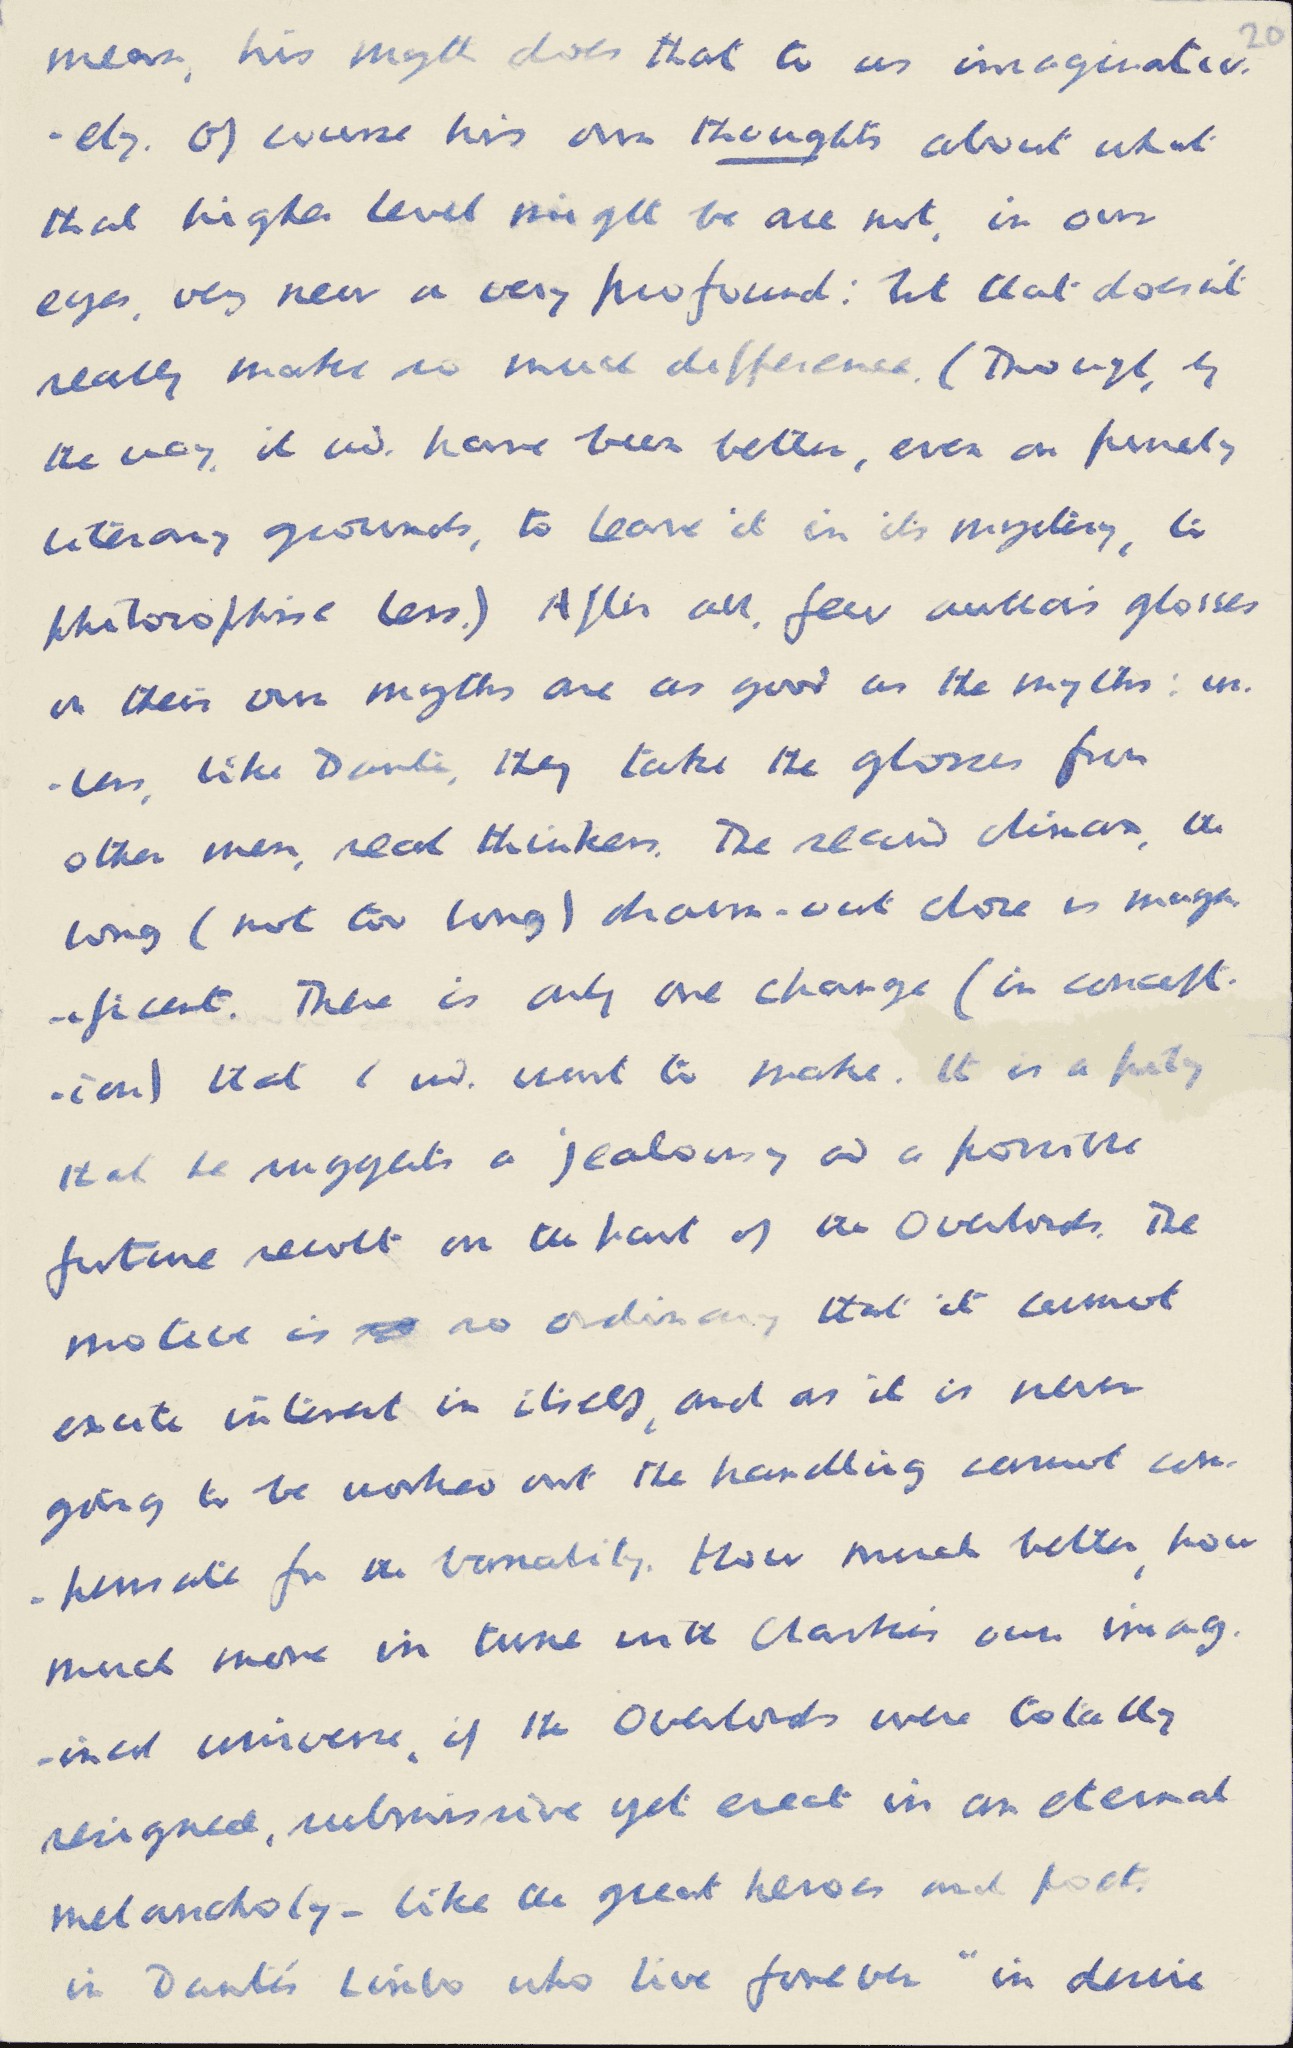 20
means, his myth does that to us imaginativ-
-ely. Of course his own thoughts about what
that higher level might be are not, in our
eyes, very new or very profound: but that doesn't
really make so much difference. (Though, by
the way, it wd. have been better, even on purely
literary grounds, to leave it in its mystery, to
philosophise less.) After all, few authors glosses
on their own myths are as good as the myths: un-
-less, like Dante, they take the glosses from
other men, real thinkers. The second climax, the
long (not too long) drawn-out close is magn-
-ificent. There is only one change (in concept-
-ion) that I wd. want to make. It is a pity
that he suggests a jealousy and a possible
future revolt on the part of the Overlords. The
motive is so ordinary that it cannot
excite interest in itself, and as it is never
going to be worked out the handling cannot com-
-pensate for the banality. How much better, how
much more in tune with Clarke's own imag-
-ined universe, if the Overlords were totally
resigned, submissive yet erect in an eternal
melancholy - like the great heroes and poets
in Dante's Limbo who live forever "in desire